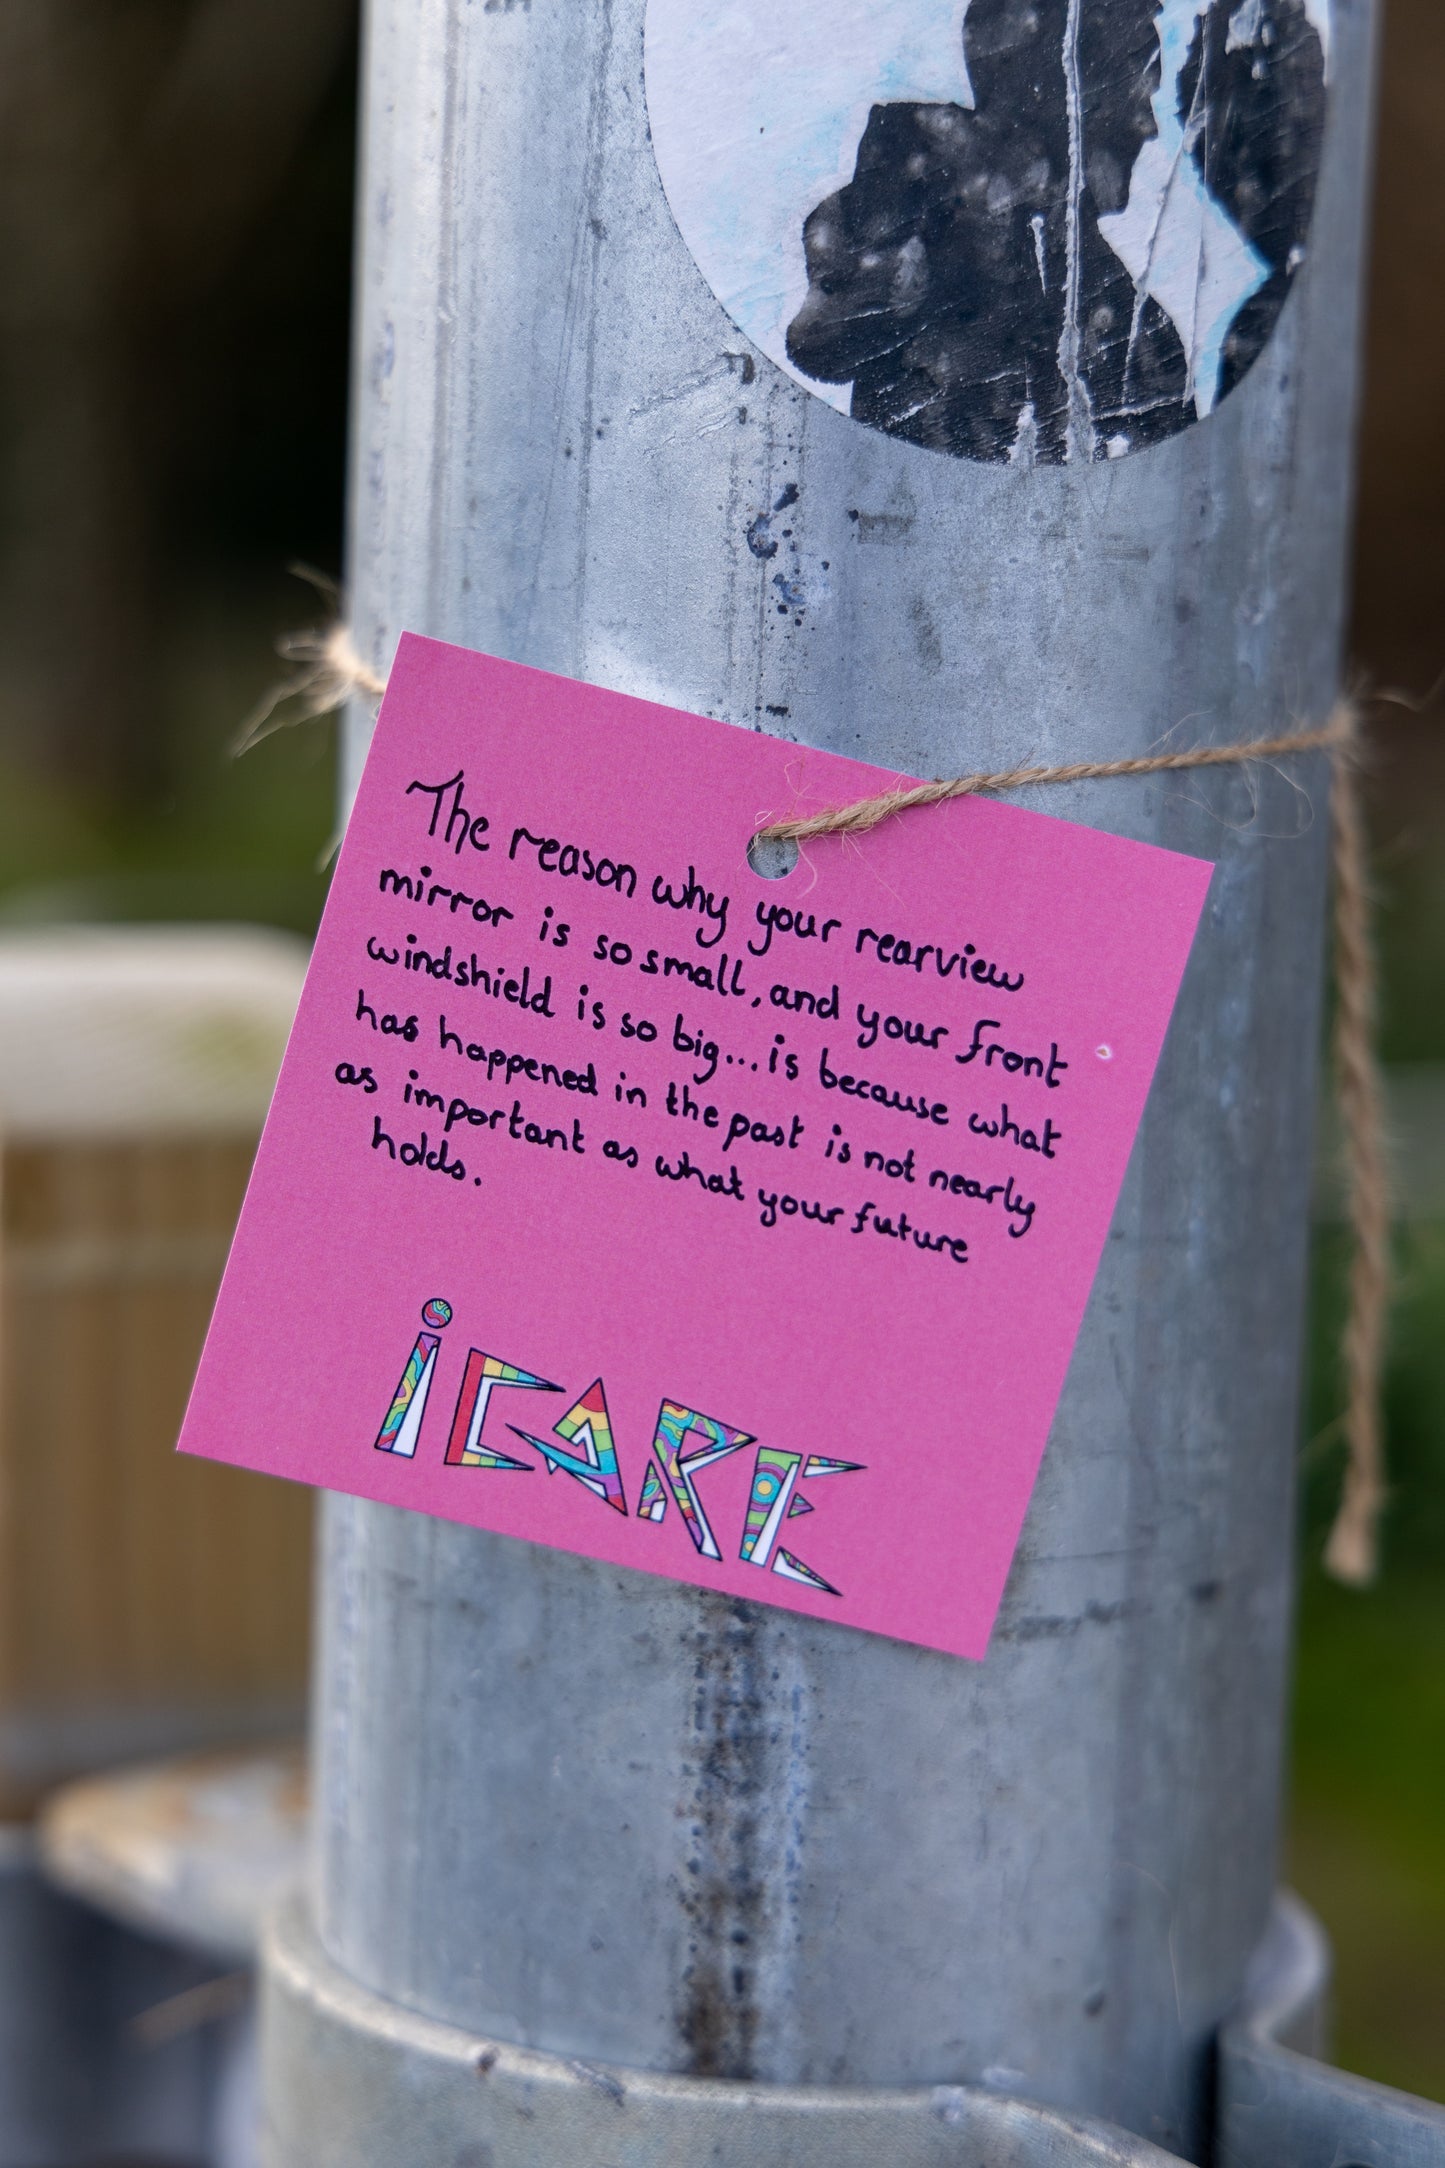 The reason why your rearview
mirror is so small, and your front
windshield is so big... is because what
has happened in the past is not nearly
as important as what your future
holds.
iCARE